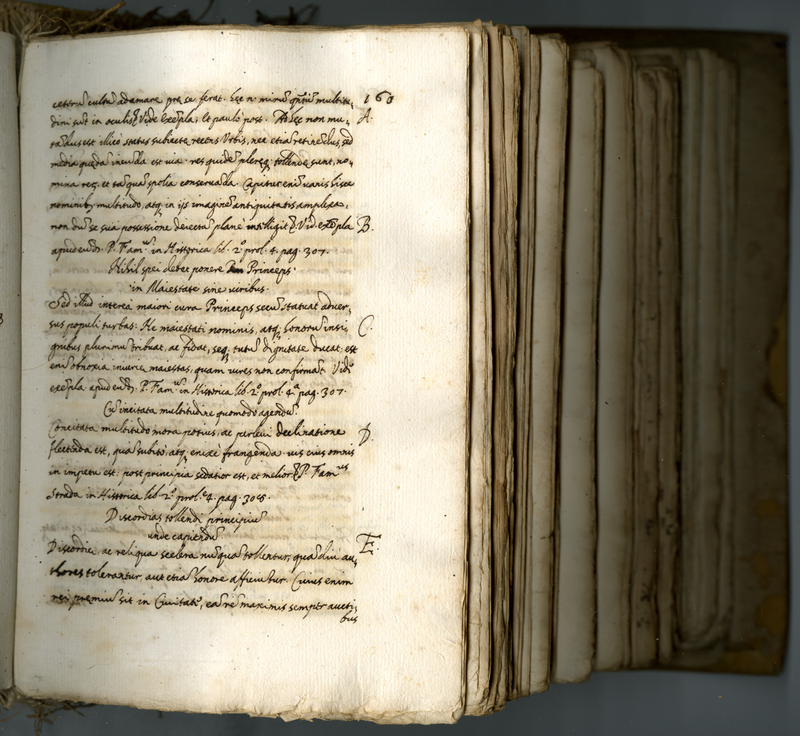 ceteru᷉ cultu᷉ adamare præ se ferat. hæc n. minus qua᷉tu᷉ multitu- 160
dini su᷉t in oculis. Vide exe᷉pla, et paulo post. At hæc non mu- A.
ta᷉dus est illico status subiectæ recens Vrbis, nec etia᷉ retine᷉dus, sed
media quæda᷉ ineu᷉da est via. res quide᷉ pleræq; tollendæ sunt, no-
mina reg. et ta᷉qua᷉ spolia conserua᷉da. Capitur eni᷉ uanis hisce
nominib; multitudo, atq; in ijs imagine᷉ antiquitatis amplexa,
non du᷉ se sua possessione deiecta᷉ plane intelligit. Vid. exe᷉pla B.
apud eu᷉d. P. Fam.^m in Historica lib. 2.° prol. 4. pag. 307.
Nihil spei debet ponere Princeps
in Maiestate sine uiribus.
Sed illud interea maiori cura Princeps secu᷉ statuat aduer-
sus populi turbas: Ne maiestati nominis, atq; honoru᷉ insi- C.
gnibus plurimu᷉ tribuat, ac fidat, seq; tutu᷉ dignitate ducat. est
eni᷉ obnoxia iniuriæ maiestas, quam uires non confirma᷉t. Vide
exe᷉pla apud eu᷉d. P. Fam.^m in Historica lib. 2.° prol. 4.ª pag. 307.
Cu᷉ incitata multitudine quomodo agendu᷉.
Concitata multitudo mora potius, ac perleui declinatione D.
flectenda est, qua᷉ subito, atq; enixe frangenda. uis eius omnis
in impetu est: post principia sedatior est, et melior. P. Fam^us
Strada in Historica lib. 2.° prol.e 4. pag. 308.
Discordias tollendi principiu᷉
unde capiendu᷉
Discordiæ, ac reliqua scelera nu᷉qua᷉ tollentur, qua᷉diu au- E.
thores tolerantur, aut etia᷉ honore afficiu᷉tur. Cuius enim
rei præmiu᷉ sit in Ciuitate, ea᷉ re᷉ maximis semper aucti-
bus